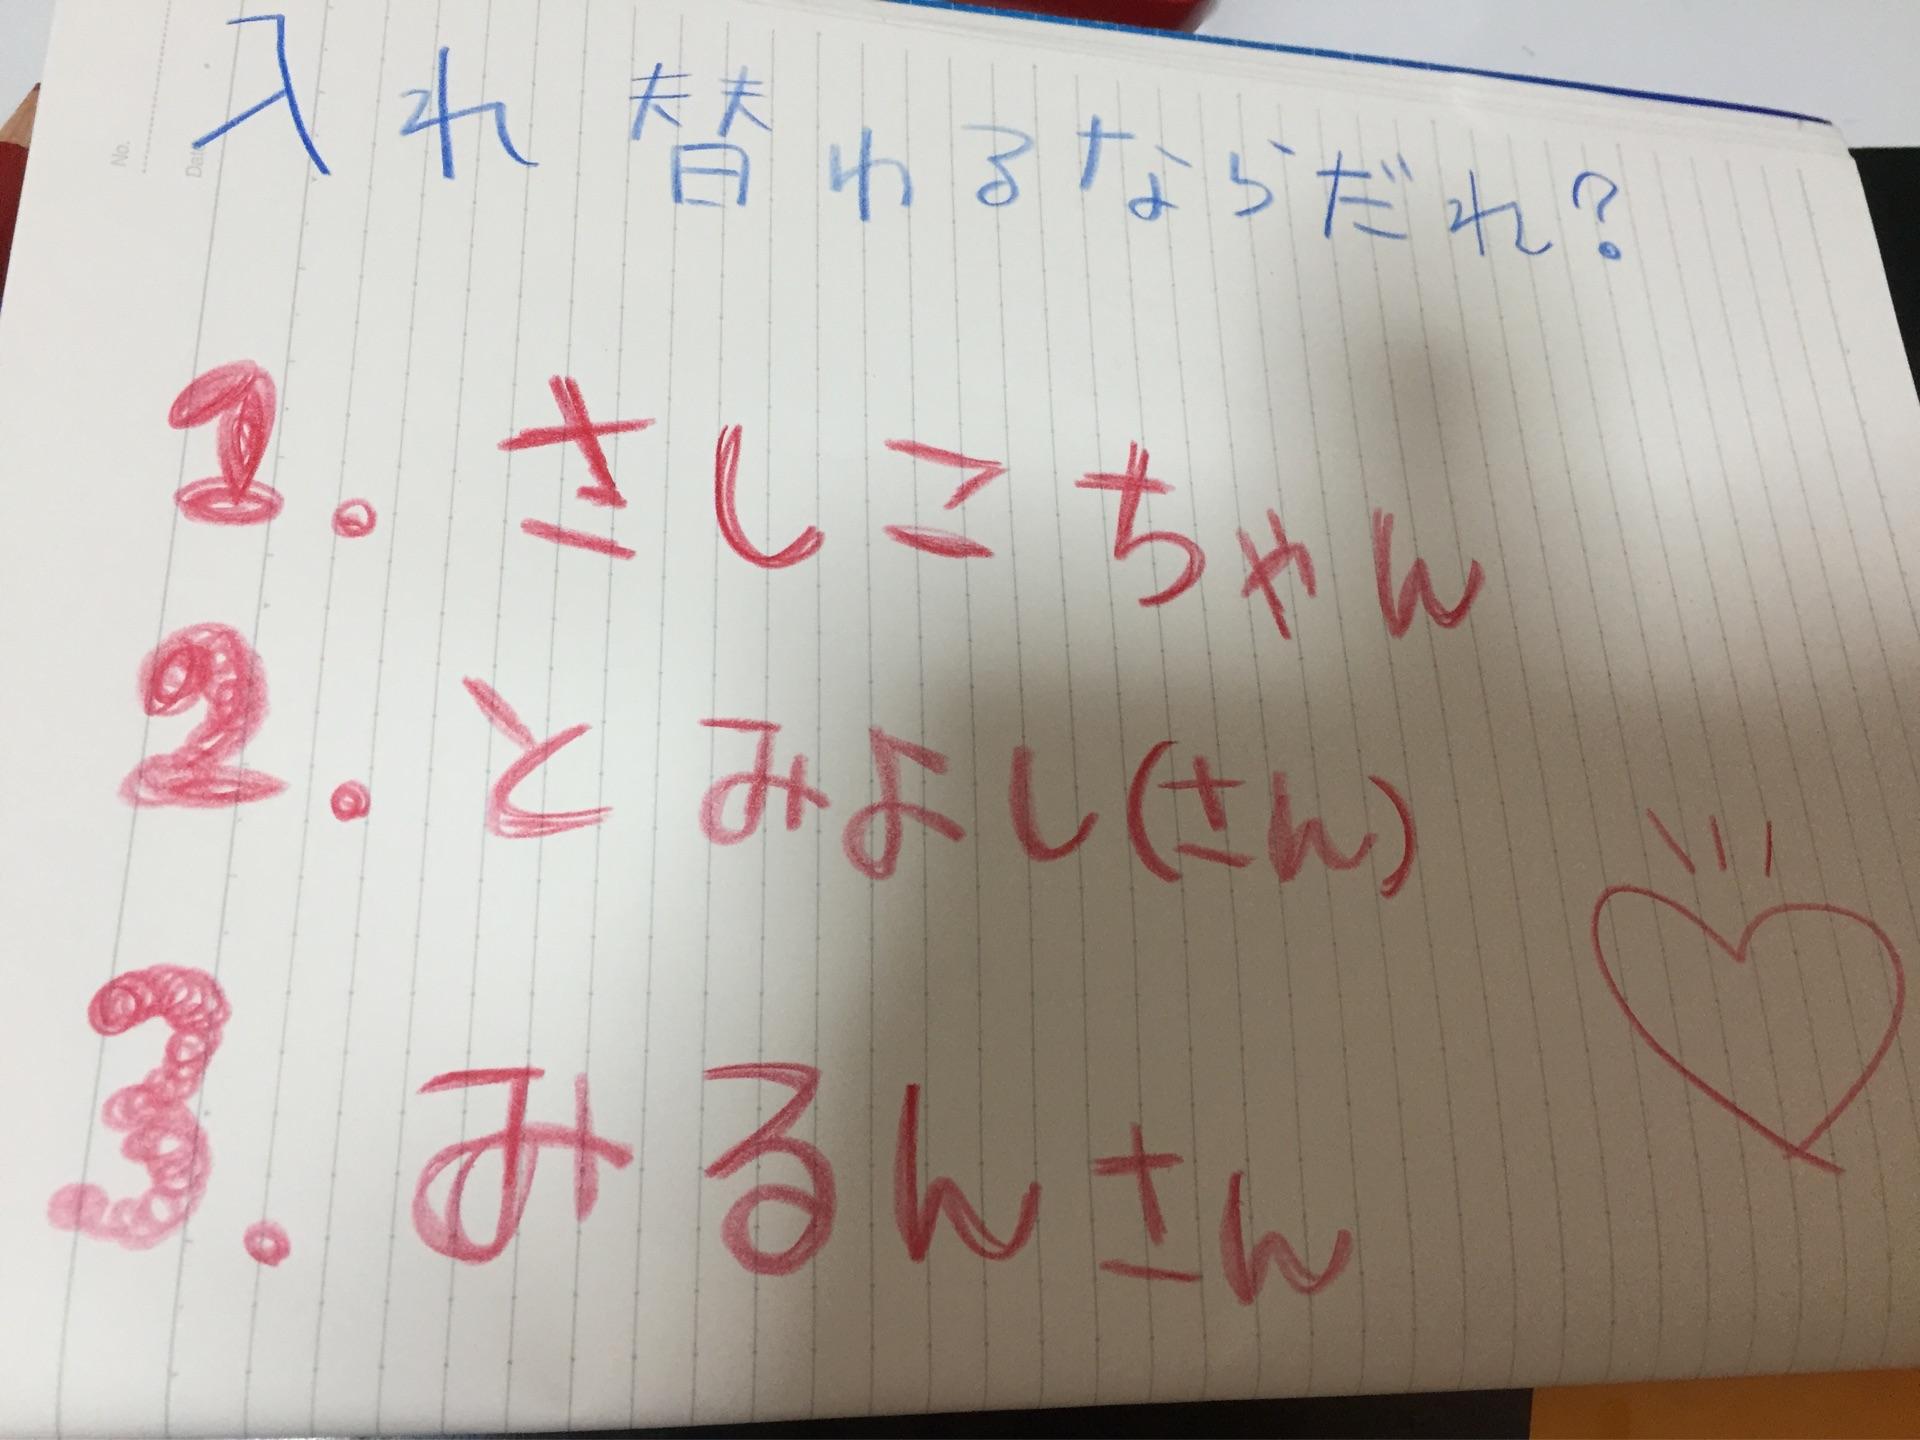 No.
Date
入れ替わるならだれ?
1. さしこちゃん
2. とみよし(さん)
3. みるんさん